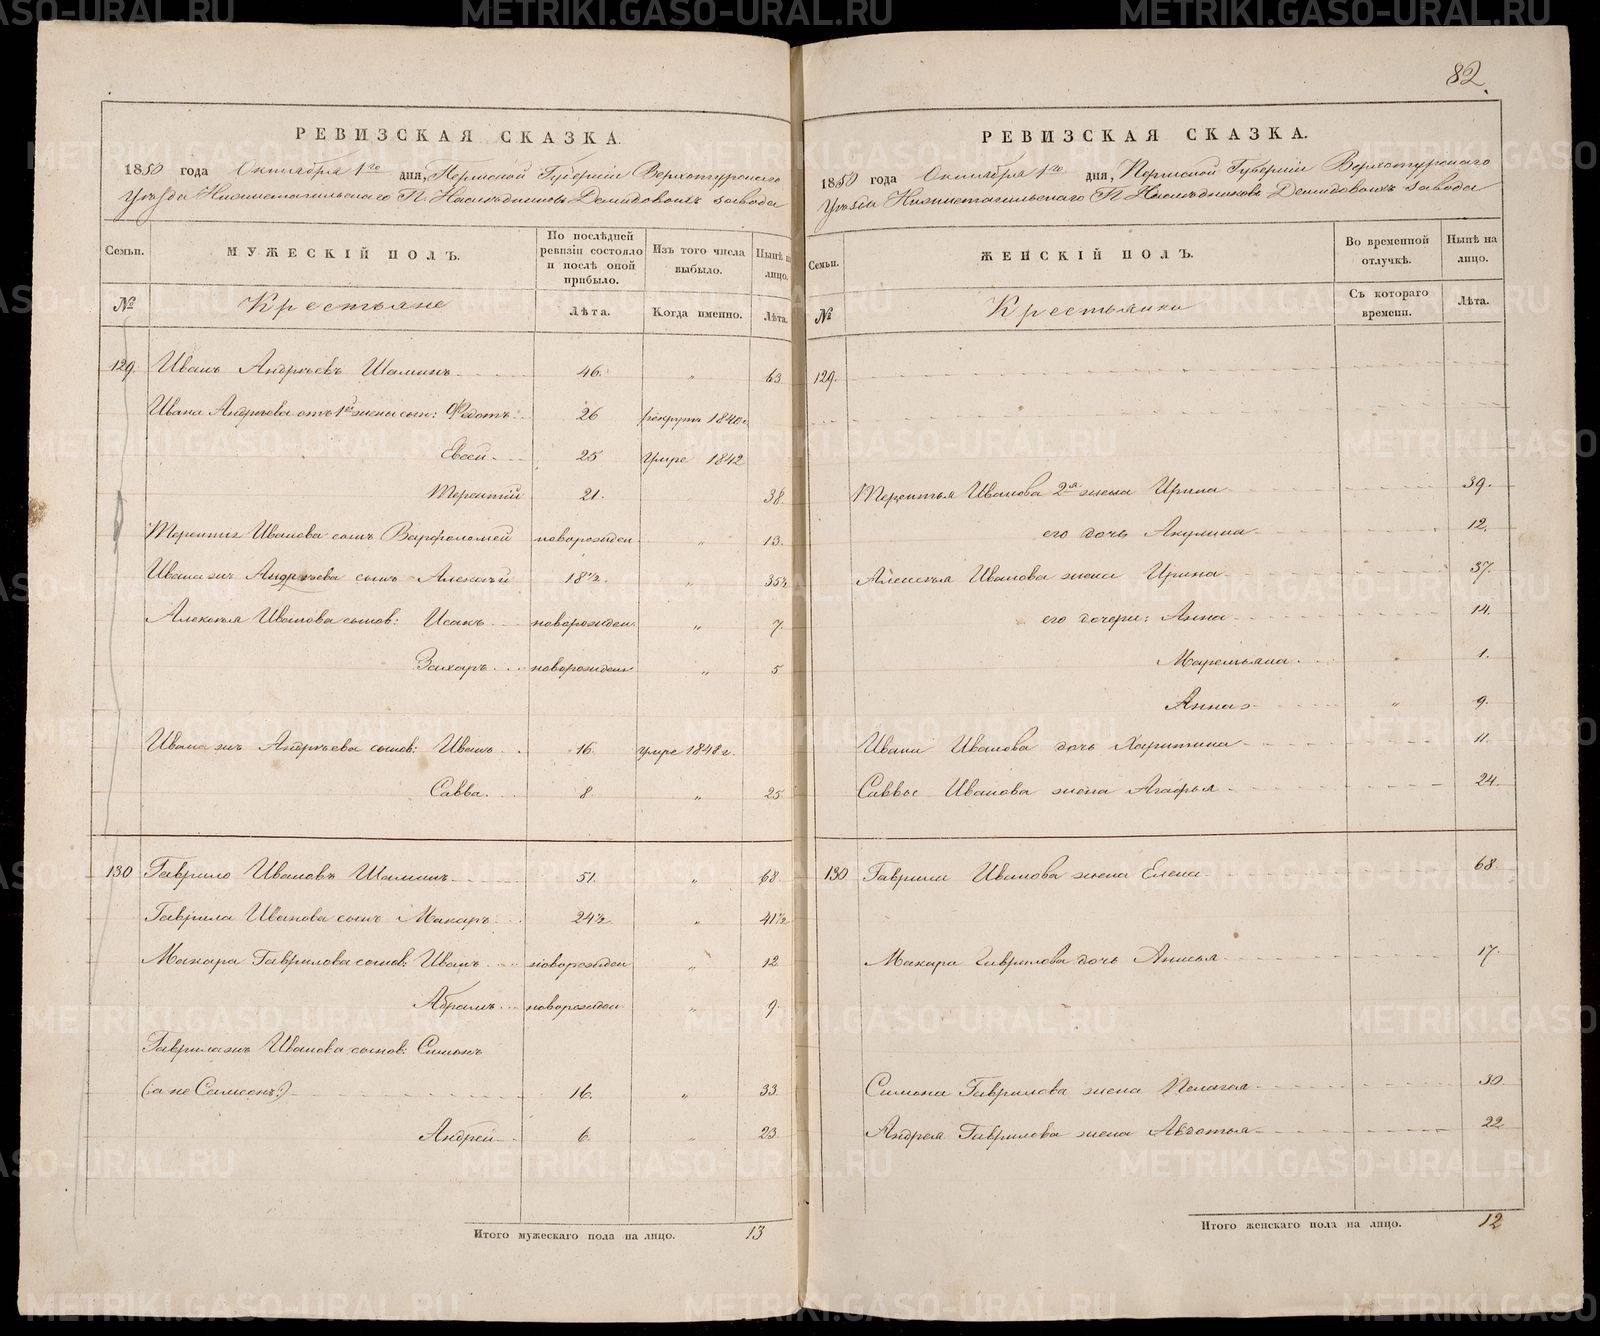 82.
РЕВИЗСКАЯ СКАЗКА.
1850 года Октября 1го дня, Пермской Губерніи Верхотурскаго
Уѣзда Нижнетагильскаго Г.г. Наслѣдниковъ Демидовыхъ завода
Семьи. МУЖЕСКІЙ ПОЛЪ. По послѣдней ревизіи состояло и послѣ оной прибыло. Изъ того числа выбыло. Нынѣ на лицо.
№ Крестьяне Лѣта. Когда именно. Лѣта.
129. Иванъ Андрѣевъ Шаминъ 46. „ 63
Ивана Андрѣева отъ 1ой жены сын: Федотъ 26 рекрутъ 1840 г.
Евсей 25 умре 1842
Терентій 21. 38.
Терентія Иванова сынъ Варфоломей новорожден „ 13.
Ивана жъ Андрѣева сынъ Алексѣй 18½. „ 35½
Алексѣя Иванова сынов: Исакъ новорожден „ 7.
Захаръ новорожден „ 5
Ивана жъ Андрѣева сынов: Иванъ 16. умре 1848 г.
Савва 8. „ 25.
130 Гаврило Ивановъ Шаминъ 51. „ 68.
Гаврила Иванова сынъ Макаръ 24½ „ 41½
Макара Гаврилова сынов: Иванъ новорожден „ 12
Абрамъ новорожден „ 9.
Гаврила жъ Иванова сынов: Симонъ
(а не Самсонъ:) 16. „ 33
Андрей 6. „ 23.
Итого мужескаго пола на лицо. 13
РЕВИЗСКАЯ СКАЗКА.
1850 года Октября 1го дня, Пермской Губерніи Верхотурскаго
Уѣзда Нижнетагильскаго Г.г. Наслѣдниковъ Демидовыхъ завода
Семьи. ЖЕНСКІЙ ПОЛЪ. Во временной отлучкѣ. Нынѣ на лицо.
№ Крестьянки Съ котораго времени. Лѣта.
129.
Терентья Иванова 2я жена Ирина 39.
его дочь Акулина 12.
Алексѣя Иванова жена Ирина 37.
его дочери: Анна 14.
Маремьяна 1.
Анна 9.
Ивана Иванова дочь Харитина 11.
Саввы Иванова жена Агафья 24.
130 Гаврила Иванова жена Елена 68
Макара Гаврилова дочь Анисья 17.
Симона Гаврилова жена Пелагея 30
Андрея Гаврилова жена Авдотья 22
Итого женскаго пола на лицо. 12
METRIKI.GASO-URAL.RU